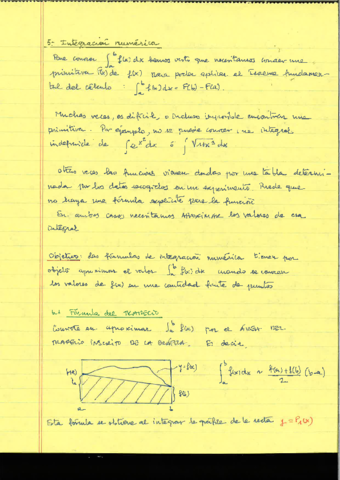 5- Integración numérica
Para conocer ∫_a^b f(x)dx hemos visto que necesitamos conocer una
primitiva F(x) de f(x) para poder aplicar el Teorema fundamen-
tal del cálculo: ∫_a^b f(x)dx = F(b) - F(a).
Muchas veces, es difícil, o incluso imposible encontrar una
primitiva. Por ejemplo, no se puede conocer una integral
indefinida de ∫e^{x²}dx ó ∫√(1+x³) dx
Otras veces las funciones vienen dadas por una tabla determi-
nada por los datos recogidos en un experimento. Puede que
no haya una fórmula explícita para la función
En ambos casos necesitamos APROXIMAR los valores de esa
integral.
Objetivo: Las fórmulas de integración numérica tienen por
objeto aproximar el valor ∫_a^b f(x)dx cuando se conocen
los valores de f(x) en una cantidad finita de puntos
Fórmula del TRAPECIO
Consiste en aproximar ∫_a^b f(x)dx por el ÁREA DEL
TRAPECIO INSCRITO DE LA GRÁFICA. Es decir,
y=f(x)
f(a)
f(b)
a
b
∫_a^b f(x)dx ≈ (f(a)+f(b))/2 (b-a)
Esta fórmula se obtiene al integrar la gráfica de la recta y = P₁(x)